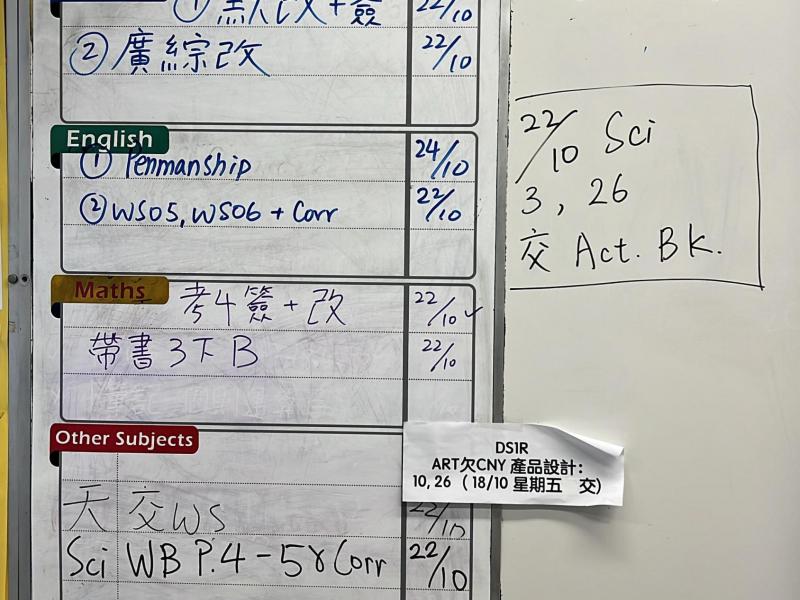 ① 默 改+簽 22/10
② 廣綜改 22/10
English
① Penmanship 24/10
② WS05, WS06 + Corr 22/10
Maths
考4簽+改 22/10 ✓
帶書3下B 22/10
Other Subjects
天 交WS 22/10
Sci WB P.4-5 & Corr 22/10
22/10 Sci
3, 26
交 Act. BK.
DS1R
ART欠CNY 產品設計：
10, 26 ( 18/10 星期五 交)